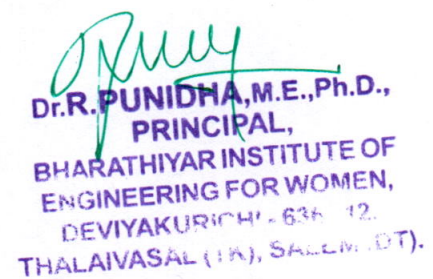 Dr.R.PUNIDHA,M.E.,Ph.D.,
PRINCIPAL,
BHARATHIYAR INSTITUTE OF
ENGINEERING FOR WOMEN,
DEVIYAKURICHI - 636 12.
THALAIVASAL (TK), SALEM (DT).